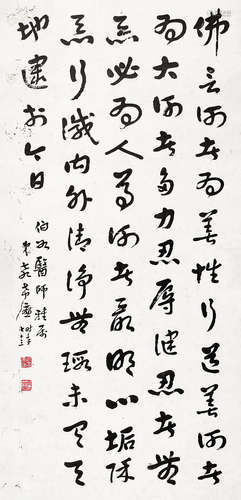 佛言何者為善惟行道善何者
為大何者多力忍辱健忍者無
惡必為人尊何者最明心垢除
惡行滅內外清淨無瑕未有天
地逮於今日
醫師雅屬
七十三